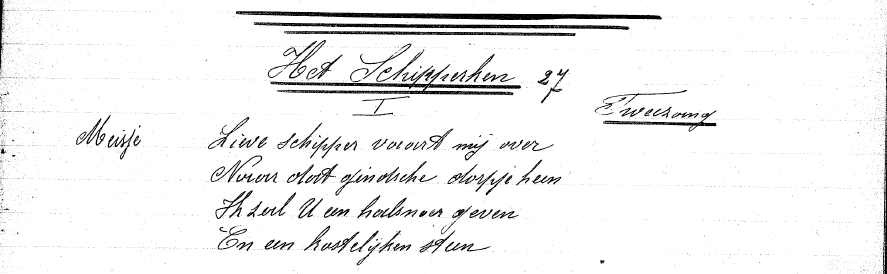 Het Schipperken 27
I
Tweezang
Meisje Lieve schipper vaart mij over
Naar dat gindsche dorpje heen
Ik zal U een halsnoer geven
En een kostelijken steen